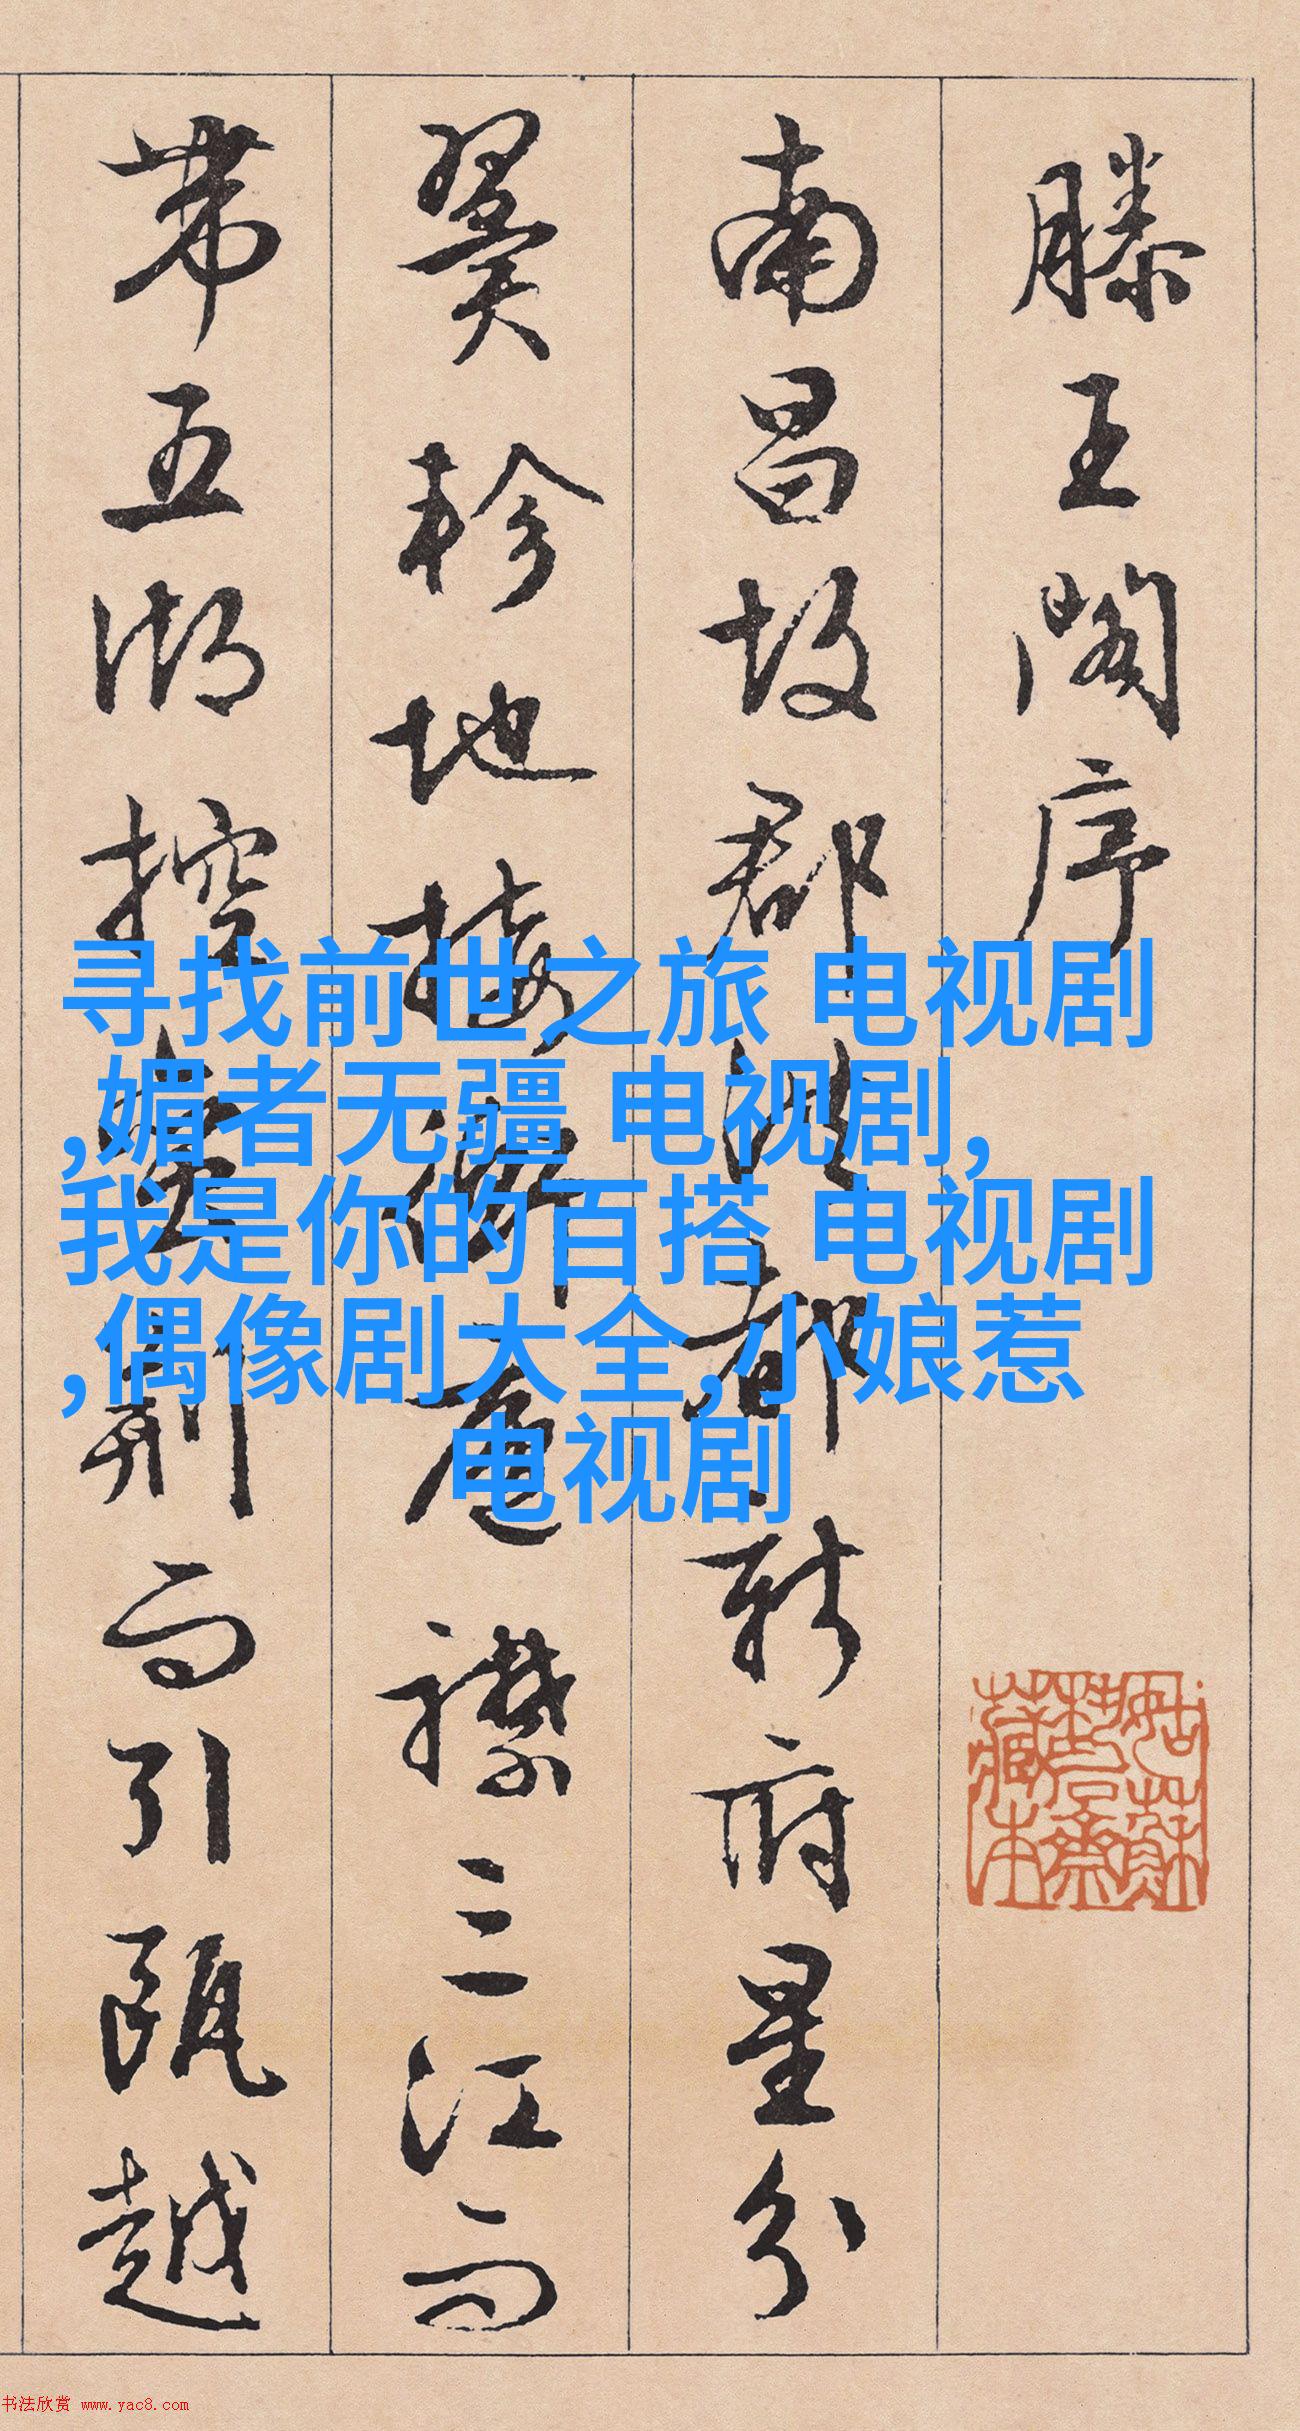 滕王閣序
南昌故郡洪都新府星分
翼軫地接衡廬襟三江而
帶五湖控蠻荆而引甌越
寻找前世之旅 电视剧
,媚者无疆 电视剧,
我是你的百搭 电视剧
,偶像剧大全,小娘惹
电视剧
书法欣赏 www.yac8.com